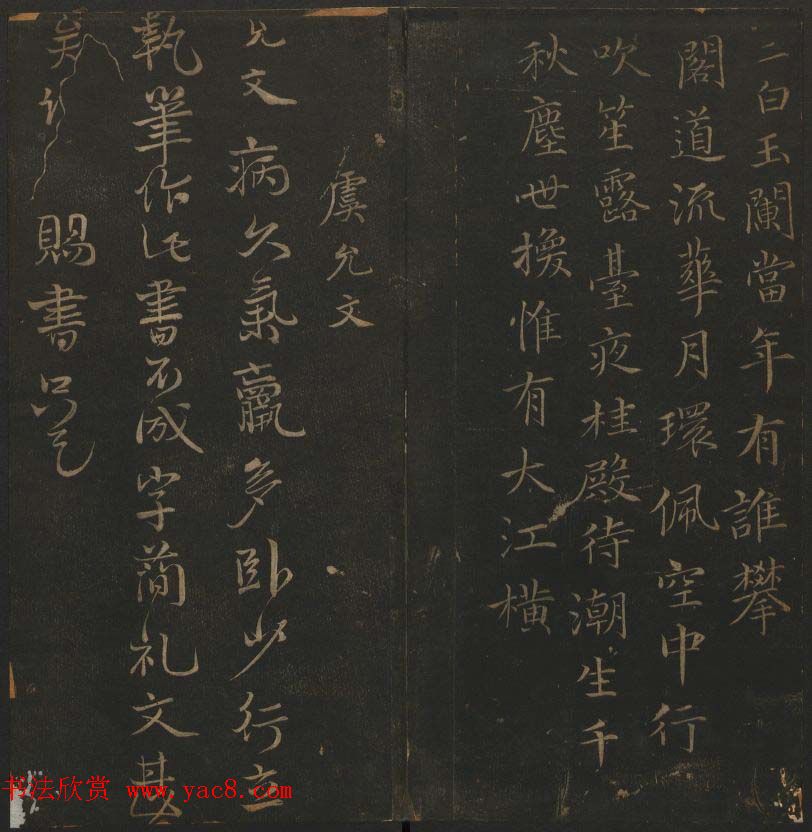 二白玉闌當年有誰攀
閣道流華月環佩空中行
吹笙露臺夜桂殿待潮生千
秋塵世換惟有大江橫
虞允文
允文病久氣羸多卧少行立
執筆作此書不成字簡礼文甚
矣 賜書只乞
书法欣赏 www.yac8.com